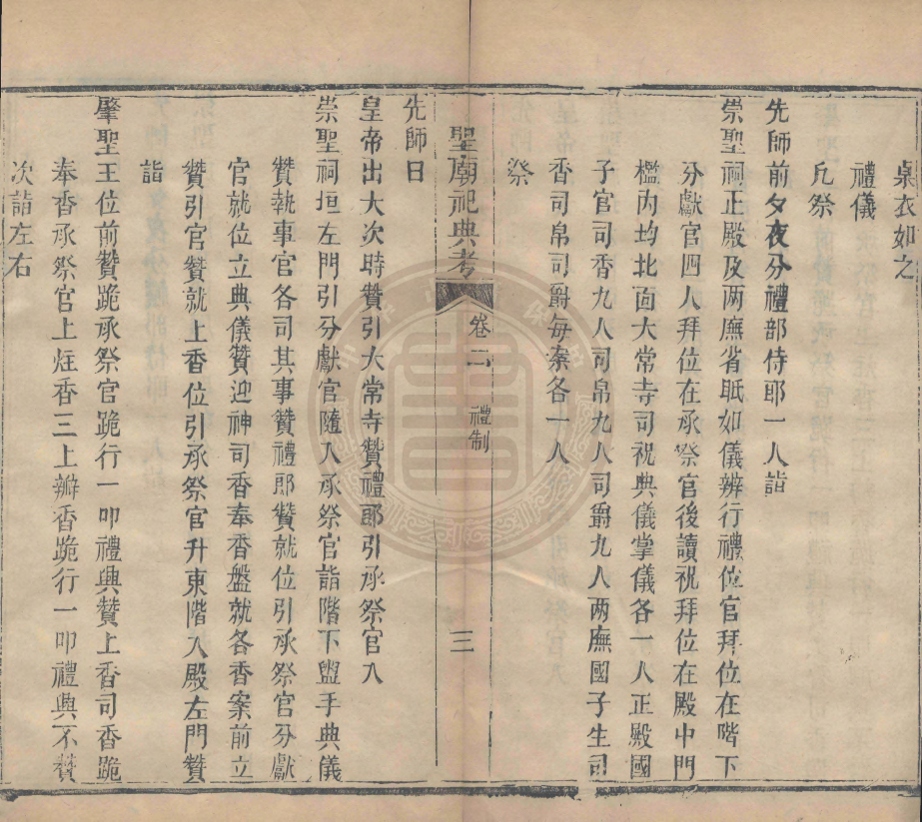 臬衣如之
禮儀
凡祭
先師前夕夜分禮部侍郎一人詣
崇聖祠正殿及两廡省眡如儀辨行禮位官拜位在階下
分獻官四人拜位在承祭官後讀祝拜位在殿中門
檻内均北面大常寺司祝典儀掌儀各一人正殿國
子官司香九人司帛九人司爵九人两廡國子生司
香司帛司爵每案各一人
祭
聖廟祀典考
卷二
禮制
三
先師日
皇帝出大次時贊引大常寺贊禮郎引承祭官入
崇聖祠垣左門引分獻官隨入承祭官詣階下盥手典儀
贊執事官各司其事贊禮郎贊就位引承祭官分獻
官就位立典儀贊迎神司香奉香盤就各香案前立
贊引官贊就上香位引承祭官升東階入殿左門贊
詣
肇聖王位前贊跪承祭官跪行一叩禮興贊上香司香跪
奉香承祭官上炷香三上瓣香跪行一叩禮興不贊
次詣左右